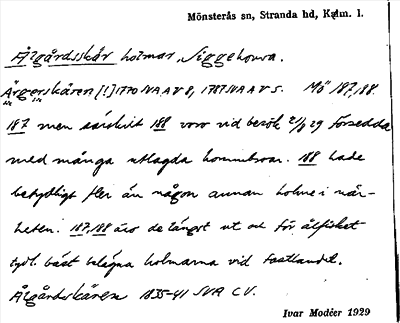 Mönsterås sn, Stranda hd, Kalm. l.
Ålgårdsskär holmar, Siggehorva.
Ärgerskären [!] 1770 SVA A V 8, 1787 SVA A V 5. Mö 187,188.
187 men särskilt 188 voro vid besök 2/8 29 försedda
med många utlagda hommloar. 188 hade
betydligt fler än någon annan holme i när-
heten. 187,188 äro de längst ut och för ålfisket
tydl. bäst belägna holmarna vid fastlandet.
Ålgårdsskären 1835-41 SVA C V.
Ivar Modéer 1929